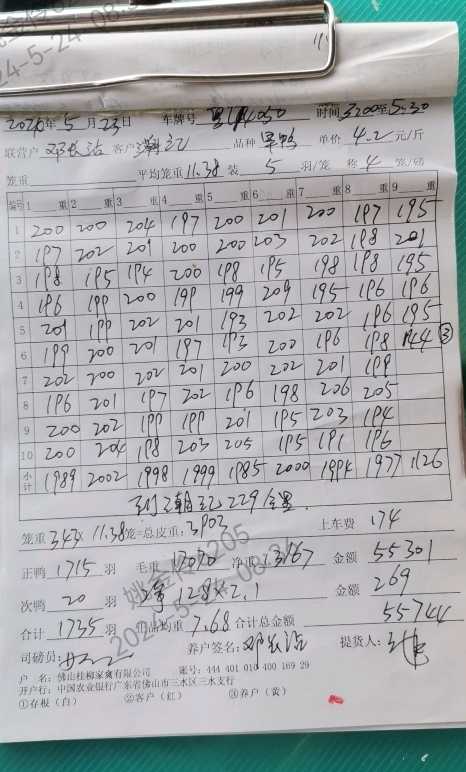 2024年5月23日 车牌号 时间3200至5:30
联营户 邓长沾 客户 潮记 品种 单价 4.2 元/斤
笼重 平均笼重 11.38 装 5 羽/笼 称 4 笼/磅
编号 1 重 2 重 3 重 4 重 5 重 6 重 7 重 8 重 9 重
1 200 200 204 197 200 201 200 197 195
2 197 202 201 200 200 203 202 198 201
3 198 195 194 200 198 195 198 198 195
4 196 199 200 199 199 209 195 196 196
5 201 199 202 201 193 202 202 196 195
6 199 200 201 197 193 200 196 198 144 ③
7 202 200 202 201 200 202 201 199
8 196 201 197 202 196 198 206 205
9 200 202 199 199 201 195 203 194
10 200 204 198 203 205 195 191 196
小计 1989 2002 1998 1999 1985 2000 1994 1977 1126
潮记 229
笼重 343×11.38 笼=总皮重: 3903 上车费 174
正鸭 1715 羽 毛重 净重 13167 金额 55301
次鸭 20 羽 128×2.1 金额 269
合计 1735 羽 均重 7.68 合计总金额 55744
司磅员: 养户签名: 邓长沾 提货人:
户 名: 佛山桂柳家禽有限公司 账号: 444 401 010 400 169 29
开户行: 中国农业银行广东省佛山市三水区三水支行
①存根(白) ②客户(红) ③养户(黄)